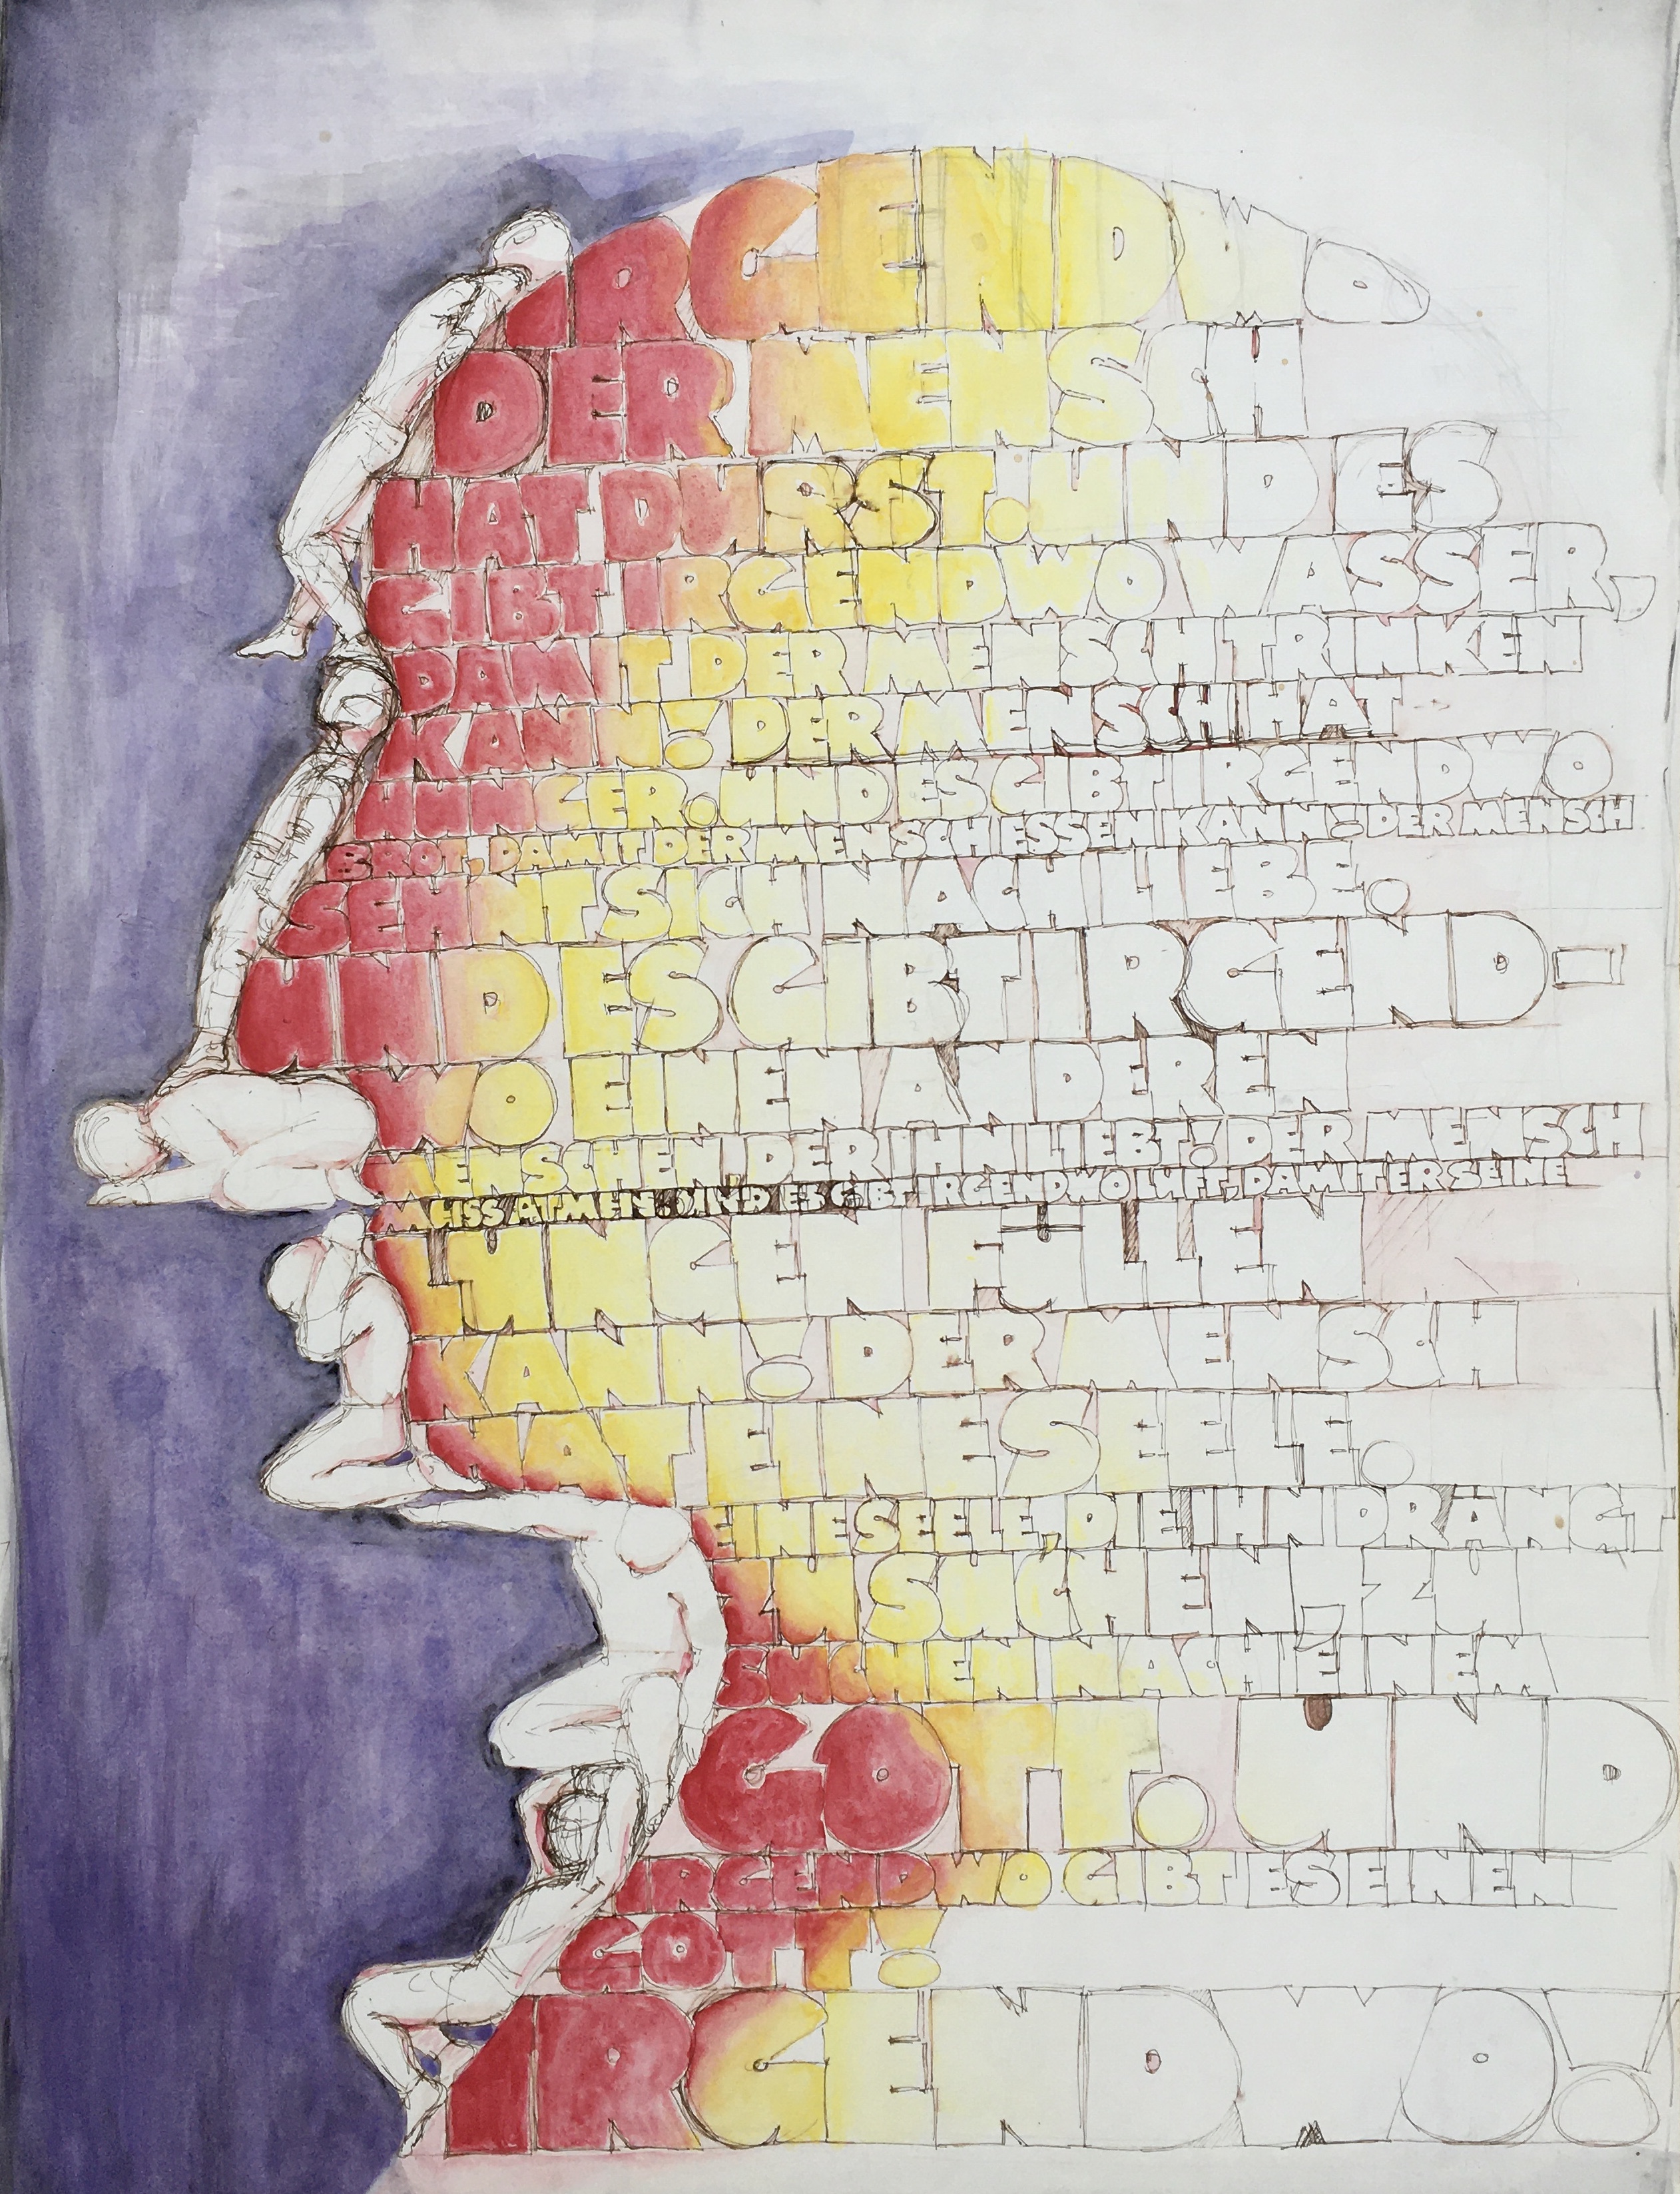 IRGENDWO
DER MENSCH
HAT DURST. UND ES
GIBT IRGENDWO WASSER,
DAMIT DER MENSCH TRINKEN
KANN! DER MENSCH HAT
HUNGER. UND ES GIBT IRGENDWO
BROT, DAMIT DER MENSCH ESSEN KANN! DER MENSCH
SEHNT SICH NACH LIEBE.
UND ES GIBT IRGEND-
WO EINEN ANDEREN
MENSCHEN, DER IHN LIEBT! DER MENSCH
MUSS ATMEN. UND ES GIBT IRGENDWO LUFT, DAMIT ER SEINE
LUNGEN FÜLLEN
KANN! DER MENSCH
HAT EINE SEELE.
EINE SEELE, DIE IHN DRÄNGT
ZU SUCHEN, ZU
SUCHEN NACH EINEM
GOTT. UND
IRGENDWO GIBT ES EINEN
GOTT!
IRGENDWO!